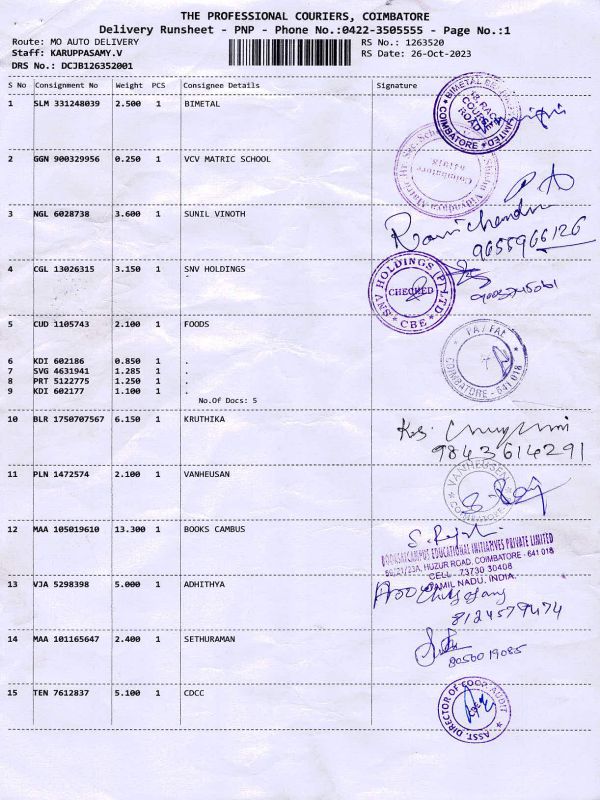 THE PROFESSIONAL COURIERS, COIMBATORE
Delivery Runsheet - PNP - Phone No.:0422-3505555 - Page No.:1
Route: MO AUTO DELIVERY RS No.: 1263520
Staff: KARUPPASAMY.V RS Date: 26-Oct-2023
DRS No.: DCJB126352001
S No Consignment No Weight PCS Consignee Details Signature
1 SLM 331248039 2.500 1 BIMETAL
COIMBATORE
2 GGN 900329956 0.250 1 VCV MATRIC SCHOOL
3 NGL 6028738 3.600 1 SUNIL VINOTH
Ravichandran
9655966126
4 CGL 13026315 3.150 1 SNV HOLDINGS
SNV HOLDINGS (P) LTD
CHECKED
CBE
5 CUD 1105743 2.100 1 FOODS
COIMBATORE - 641 018
6 KDI 602186 0.850 1 .
7 SVG 4631941 1.285 1 .
8 PRT 5122775 1.250 1 .
9 KDI 602177 1.100 1 .
No.Of Docs: 5
10 BLR 1750707567 6.150 1 KRUTHIKA
9843614291
11 PLN 1472574 2.100 1 VANHEUSAN
VANHEUSEN
COIMBATORE
12 MAA 105019610 13.300 1 BOOKS CAMBUS
BOOKSATCAMPUS EDUCATIONAL INITIATIVES PRIVATE LIMITED
HUZUR ROAD, COIMBATORE - 641 018
CELL : 73730 30408
TAMIL NADU, INDIA.
13 VJA 5298398 5.000 1 ADHITHYA
8124579474
14 MAA 101165647 2.400 1 SETHURAMAN
8056019085
15 TEN 7612837 5.100 1 CDCC
ASST. DIRECTOR OF COOP. AUDIT